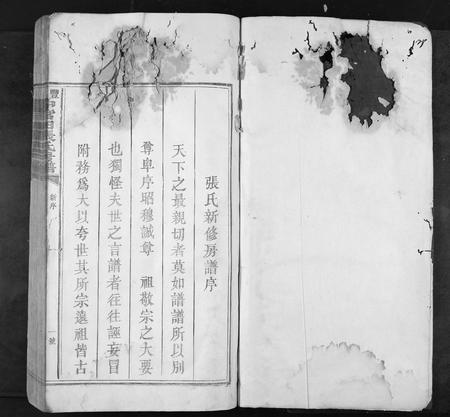 張氏新修房譜序
天下之最親切者莫如譜譜所以別
尊卑序昭穆誠尊 祖敬宗之大要
也獨怪夫世之言譜者往往誣妄冒
附務爲大以夸世其所宗遠祖皆古
豐
氏房譜
新序
一號